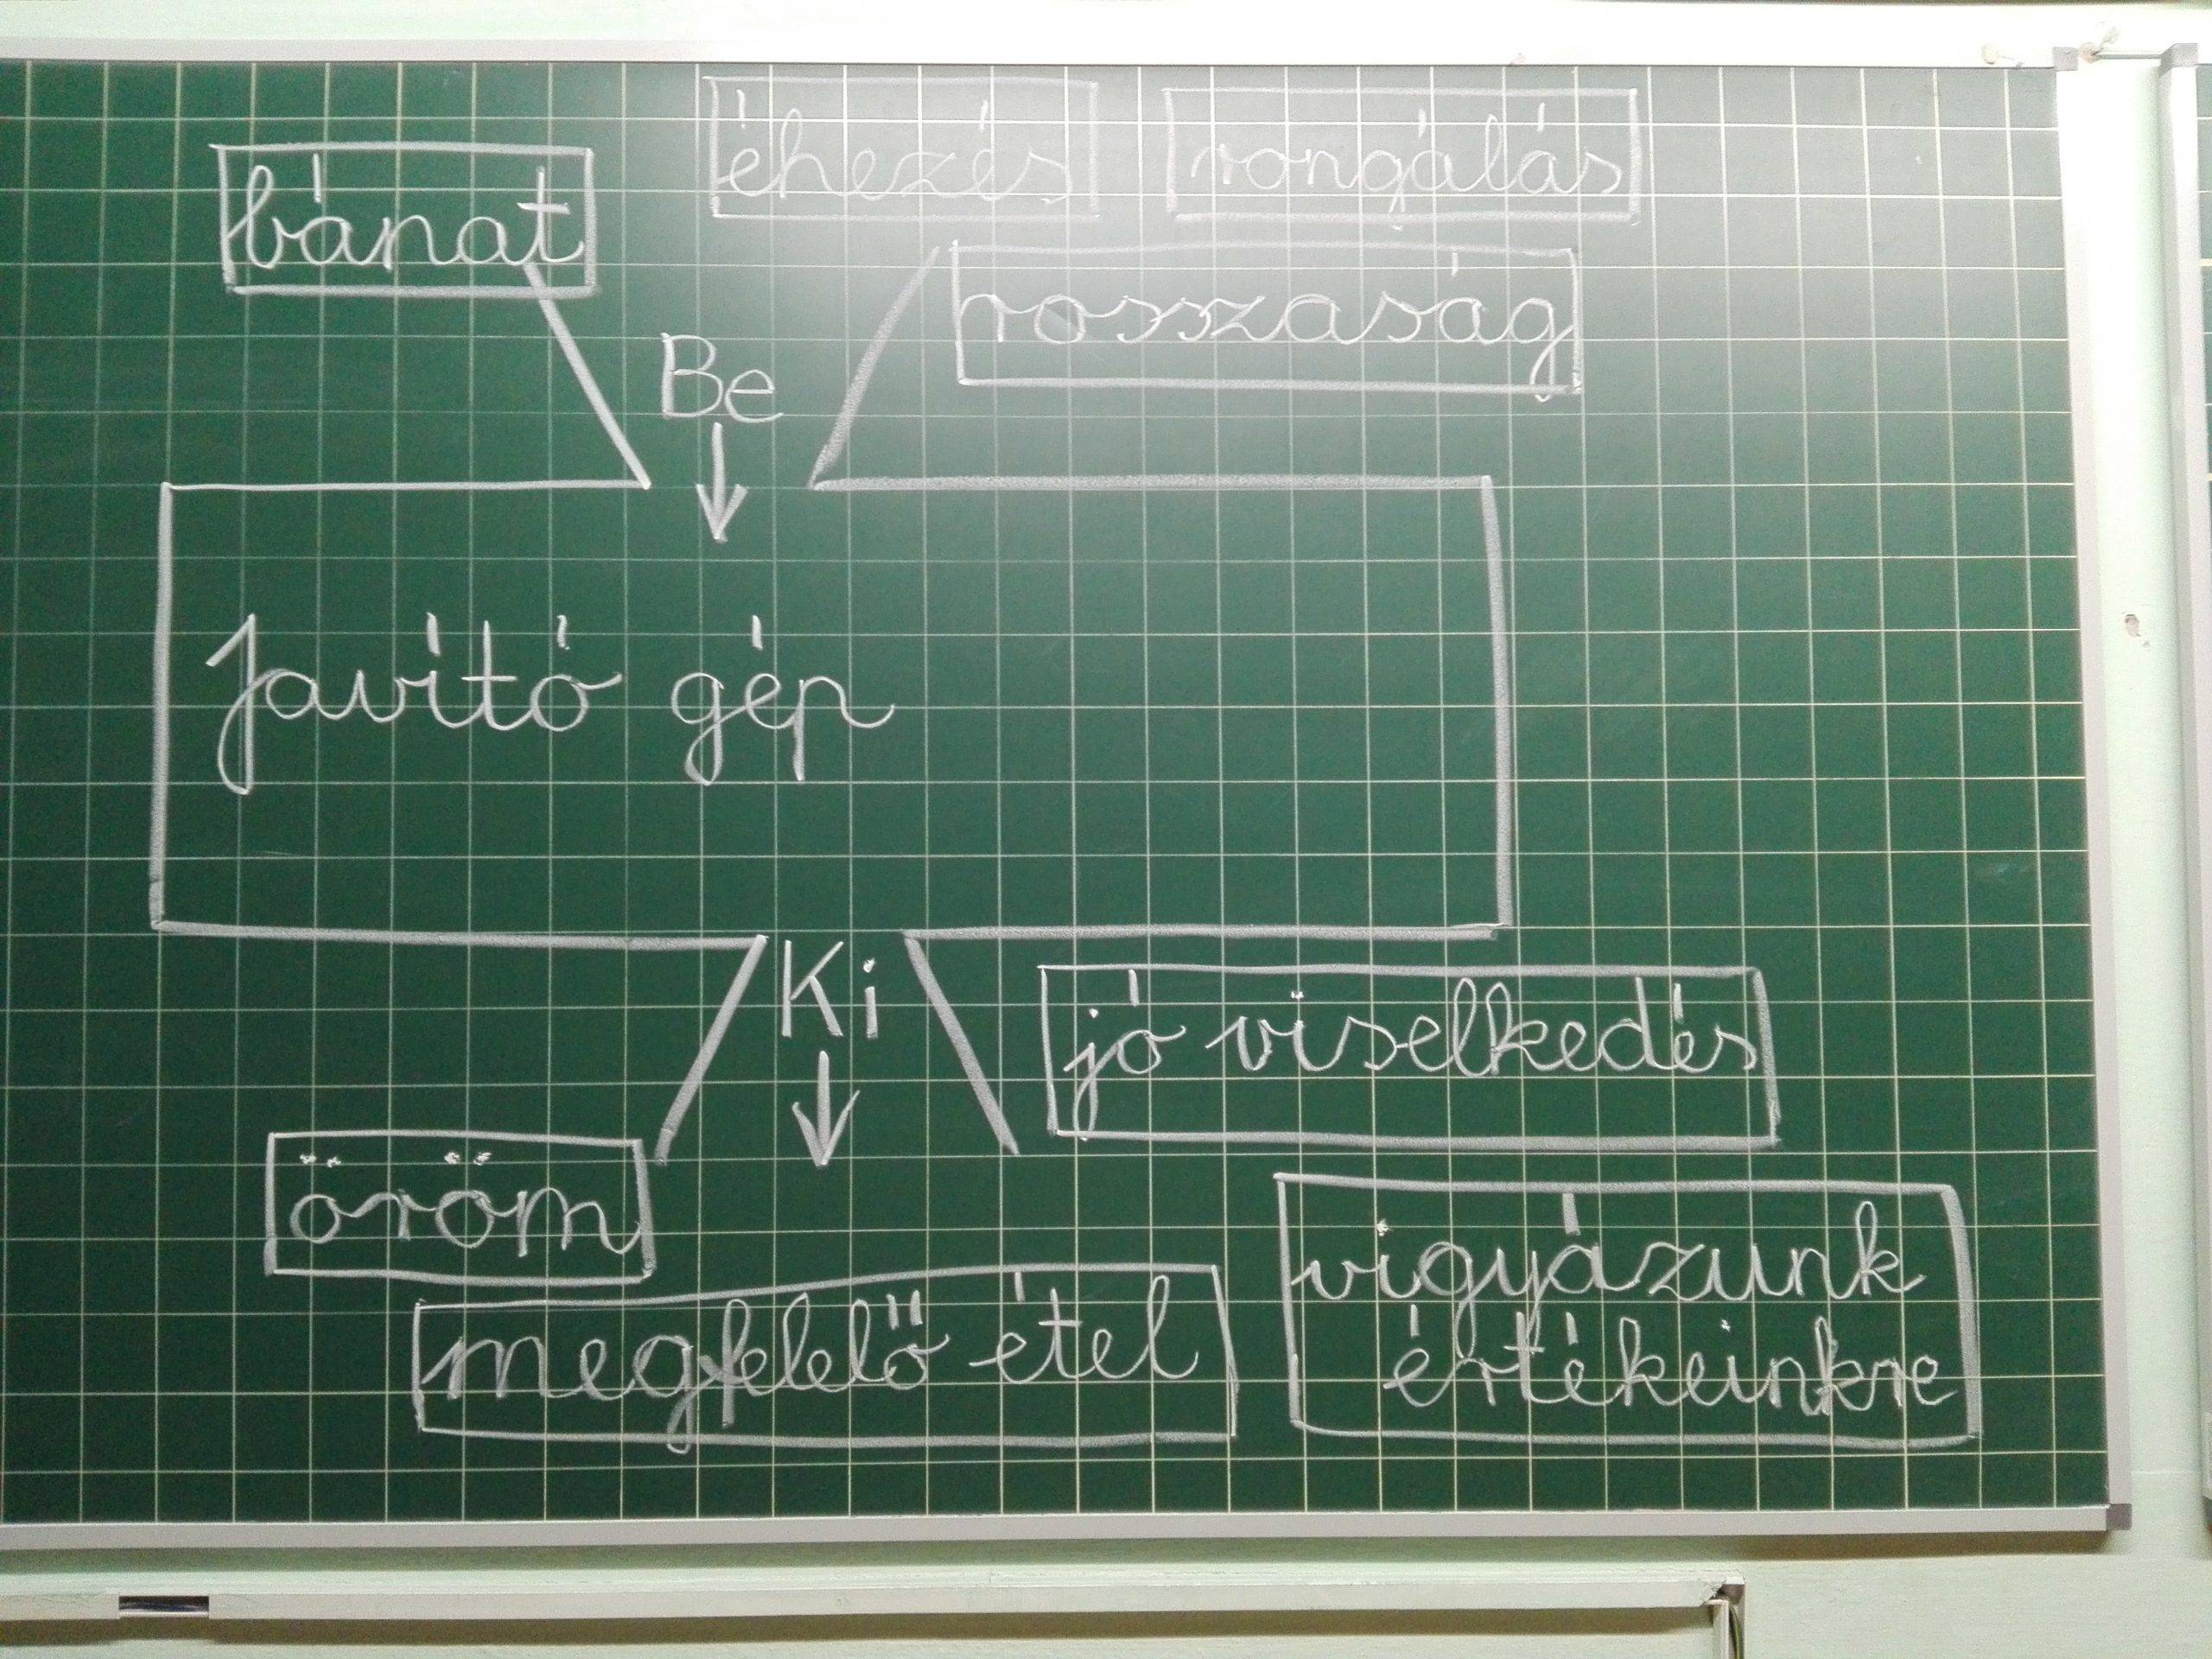 éhezés
rongálás
bánat
rosszaság
Be
Javító gép
Ki
jó viselkedés
öröm
megfelelő étel
vigyázunk
értékeinkre